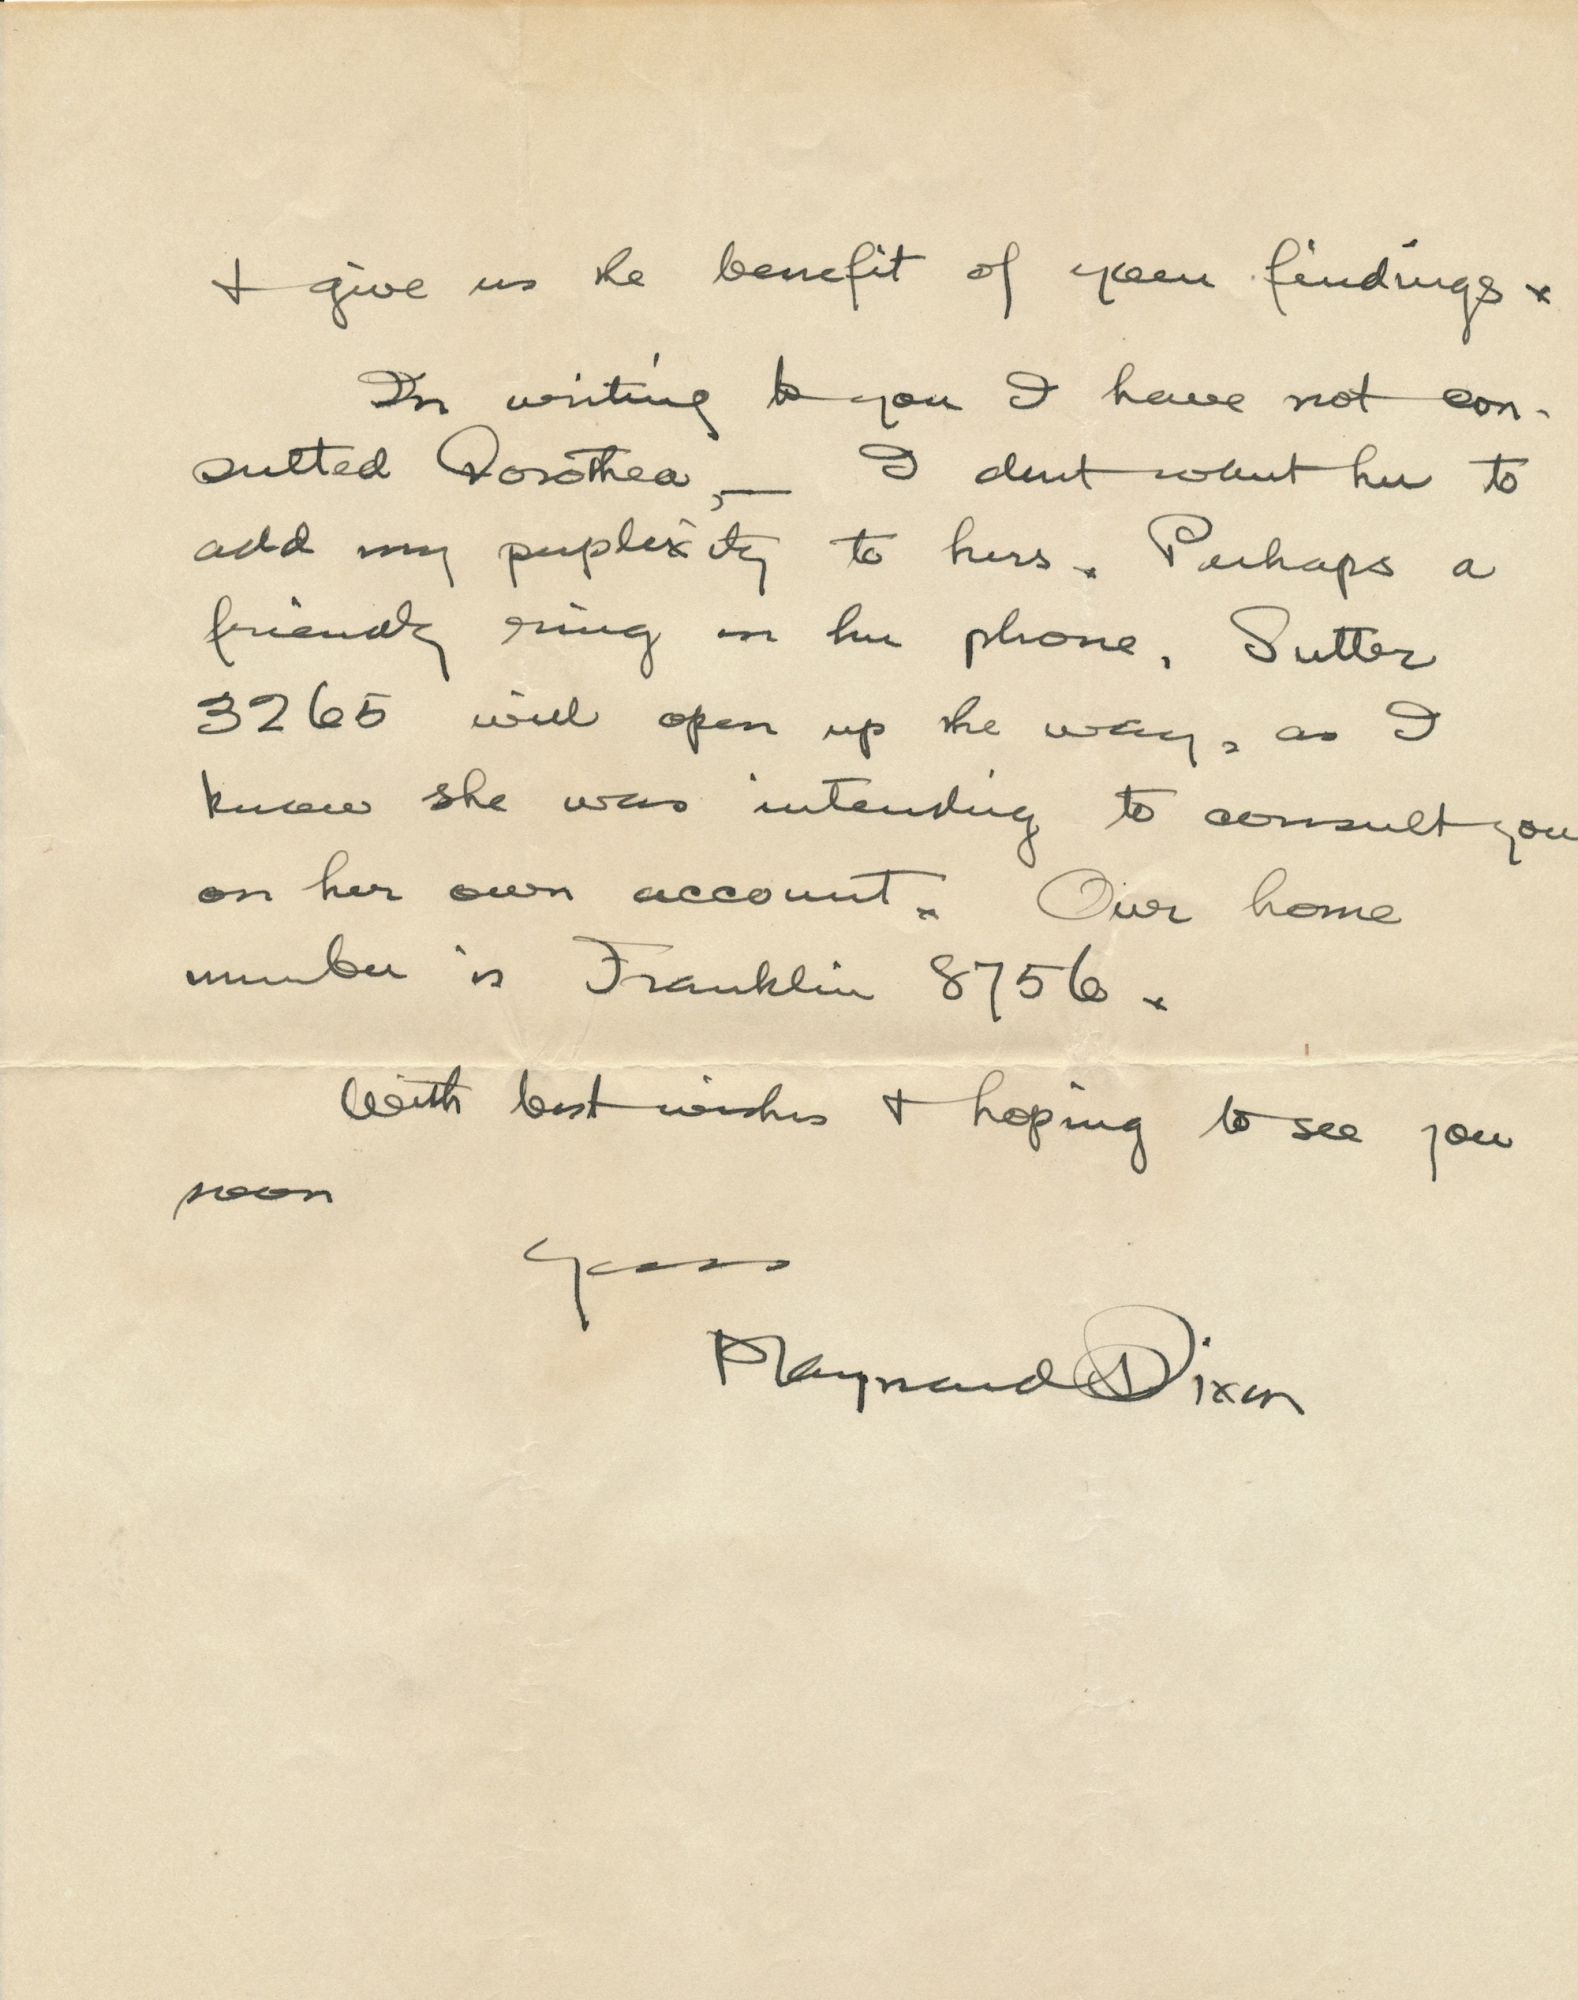 + give us the benefit of your findings x
In writing to you I have not con-
sulted Dorothea, — I dont want her to
add my perplexity to hers x Perhaps a
friendly ring on her phone, Sutter
3265 will open up the way, as I
know she was intending to consult you
on her own account x Our home
number is Franklin 8756 x
With best wishes + hoping to see you
soon
Yours
Maynard Dixon